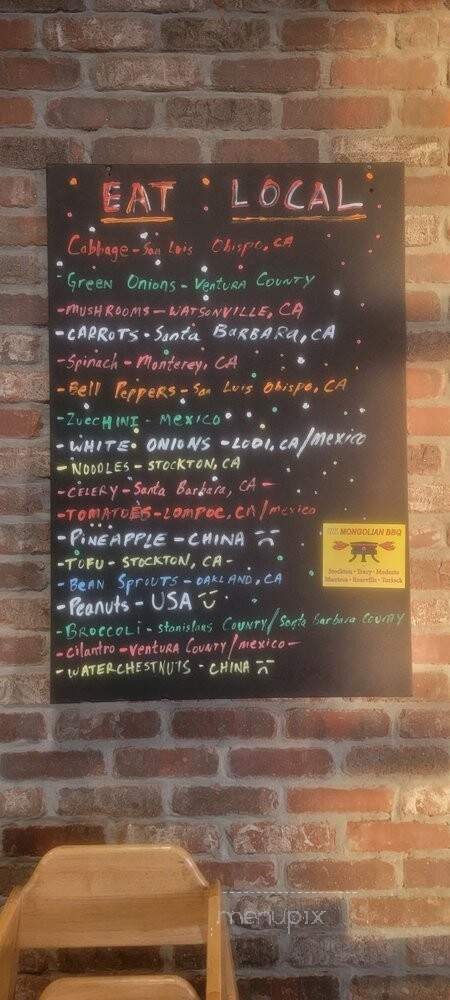 EAT LOCAL
Cabbage - San Luis Obispo, CA
Green Onions - Ventura County
- MUSHROOMS - WATSONVILLE, CA
- CARROTS - Santa BARBARA, CA
- Spinach - Monterey, CA
- Bell Peppers - San Luis Obispo, CA
- ZuccHINI - Mexico
- WHITE ONIONS - LODI, CA/Mexico
- NOODLES - STOCKTON, CA
- CELERY - Santa Barbara, CA -
- TOMATOES - LOMPOC, CA/mexico
- PINEAPPLE - CHINA
- TOFU - STOCKTON, CA -
- BEAN SPROUTS - OAKLAND, CA
- Peanuts - USA
- BROCCOLI - Stanislaus COUNTY/Santa Barbara COUNTY
- cilantro - VENTURA COUNTY/mexico -
- WATERCHESTNUTS - CHINA
MONGOLIAN BBQ
Stockton • Tracy • Modesto
Manteca • Roseville • Turlock
menupix